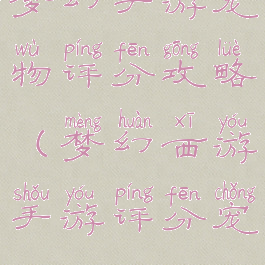 梦幻手游宠
wù píng fēn gōng lüè
物评分攻略
mèng huàn xī yóu
（梦幻西游
shǒu yóu píng fēn chǒng
手游评分宠